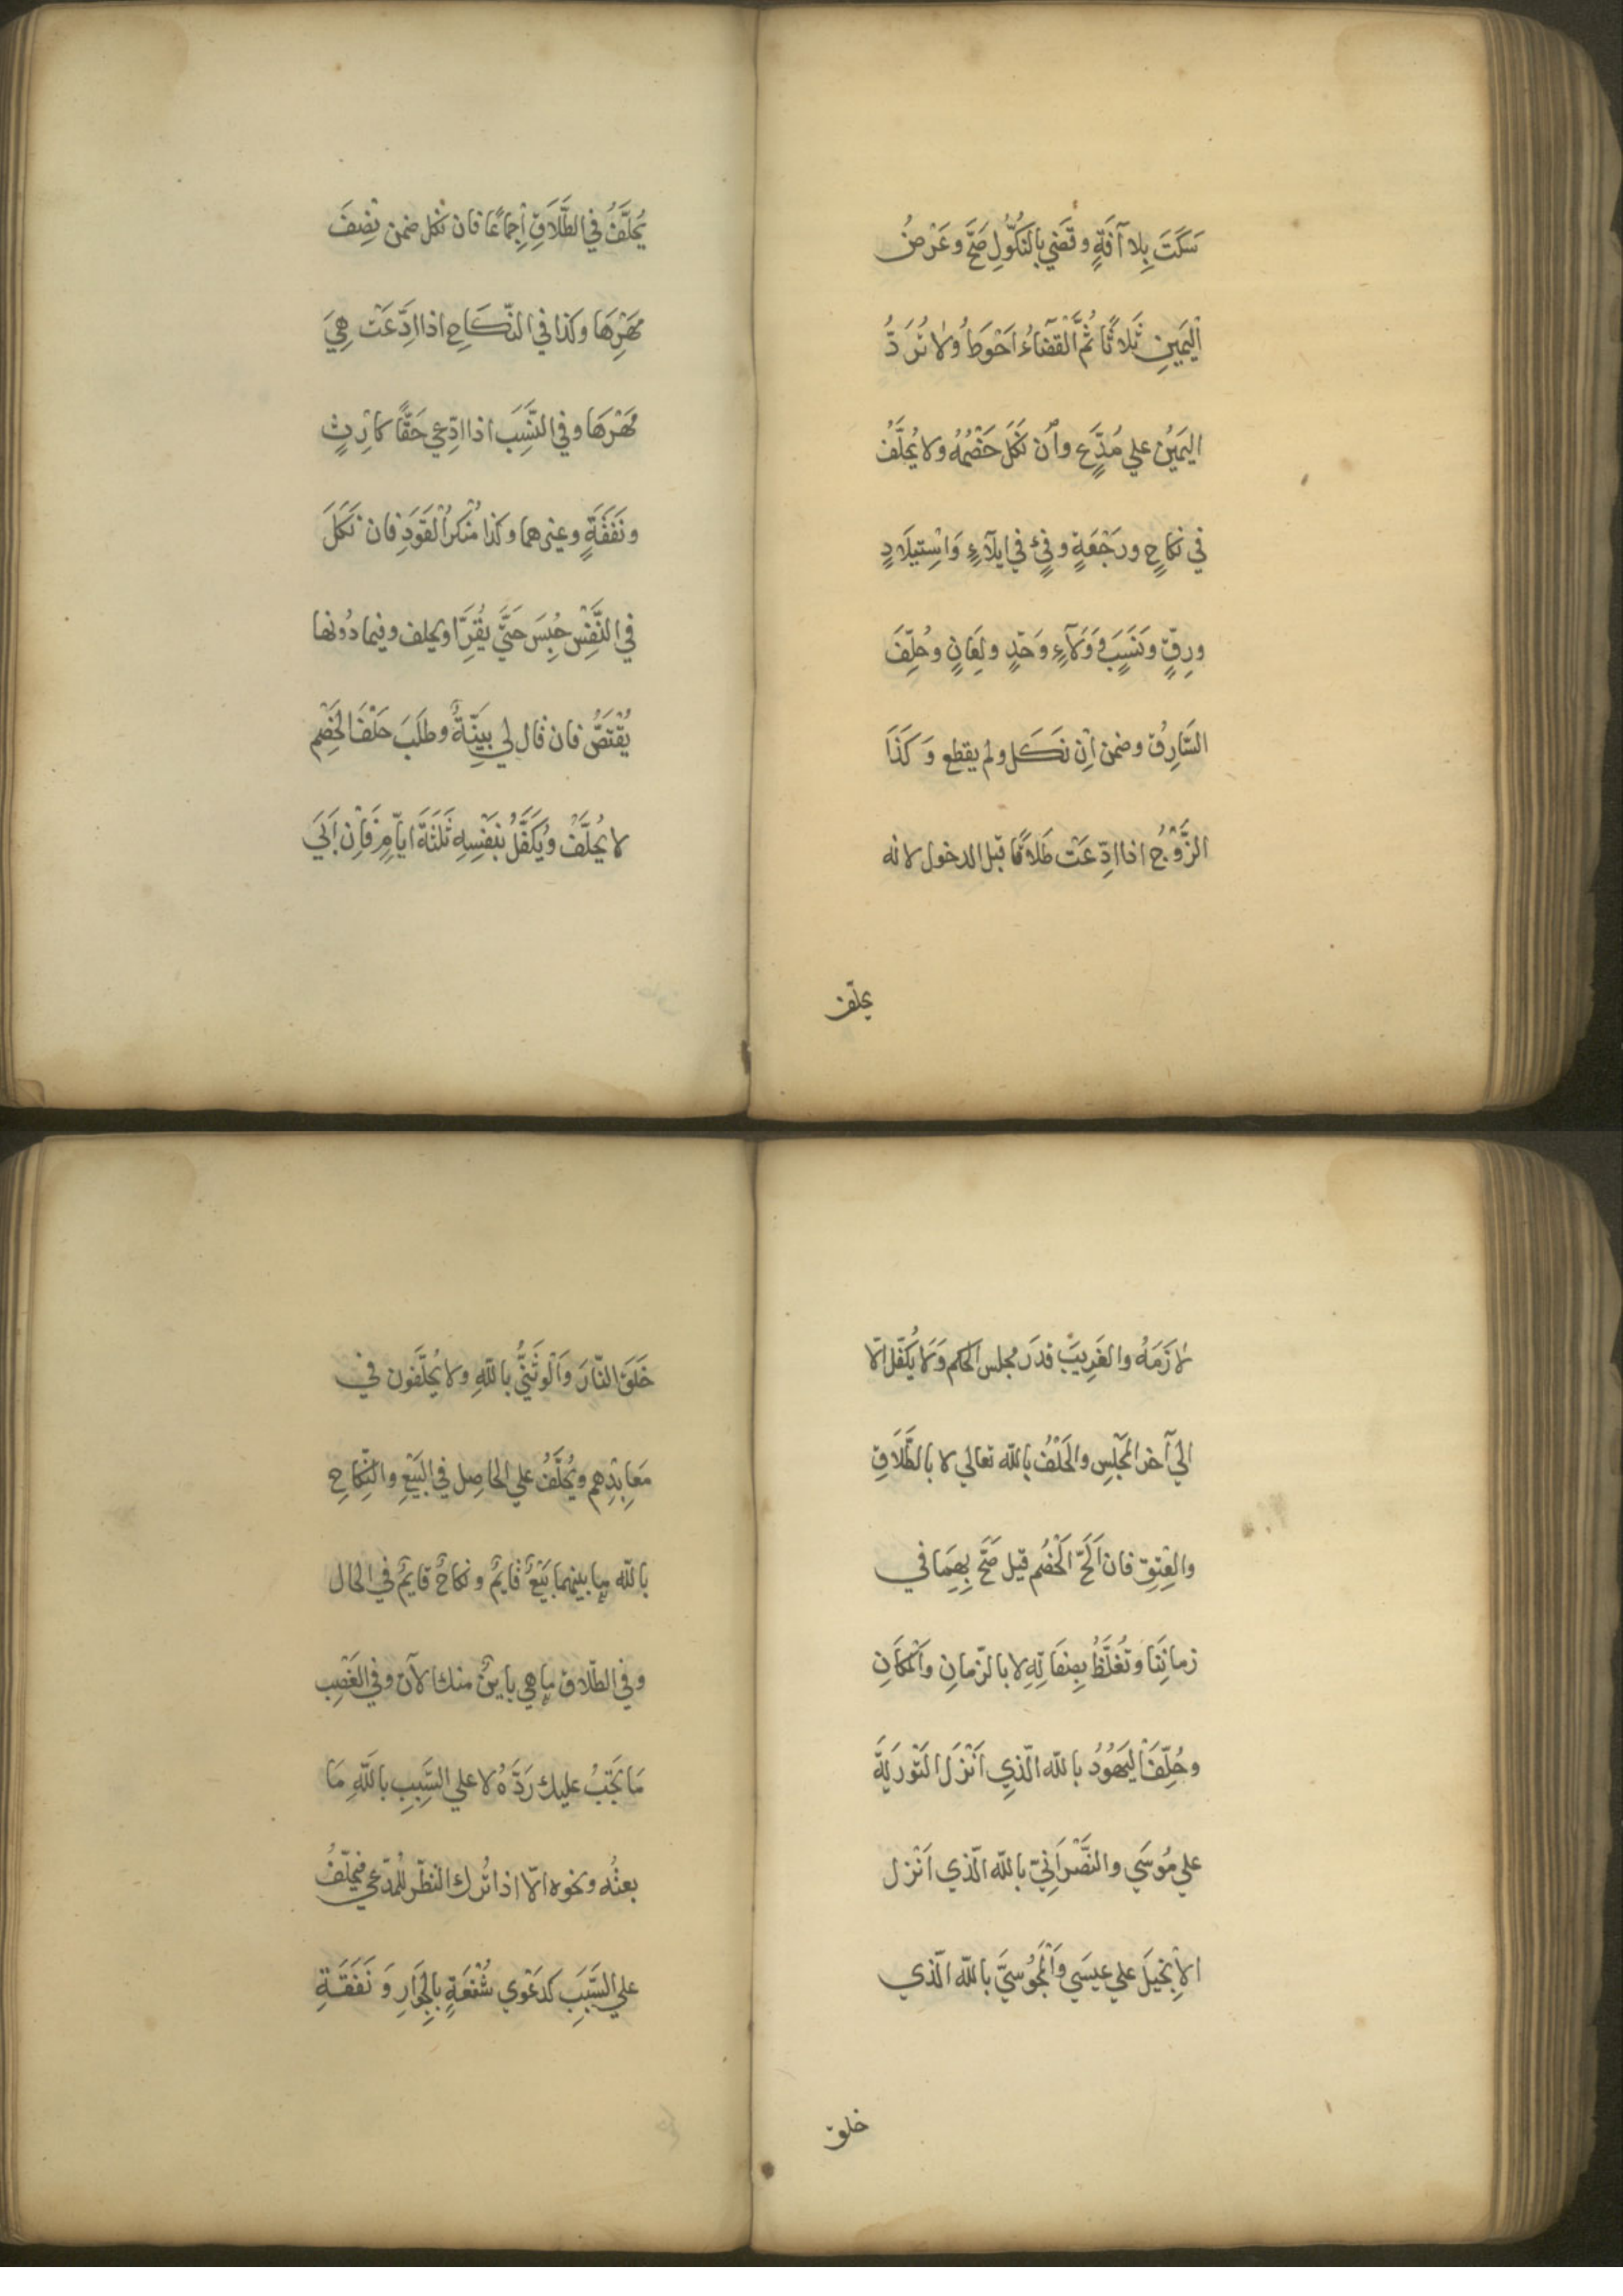 سَكَتَ بِلا آفَةٍ وقَضي بِالنُّكُولِ صَحَّ وعَرْضُ
اْليَمِينِ ثَلاثًا ثُمَّ الْقَضَاءُ اَحْوَطُ ولا تُرَدُّ
اليَمِيْنُ علي مُدَّعٍ واِن نَكَلَ خَصْمُهُ ولا يُحَلَّفُ
في نكاحٍ ورَجْعَةٍ وفَيْءٍ في ايلَآءٍ وَاسْتِيلَادٍ
ورِقٍّ ونَسَبٍ وَوَلَآءٍ وَحَدٍّ ولِعَانٍ وحُلِّفَ
السَّارِقُ وضمن اِن نَكَل ولم يقطع وَكَذَا
الزَّوْجُ اذا ادِّعَتْ طَلاقًا قبل الدخول لانه
يحلّف
يُحَلَّفُ في الطَّلَاقِ اِجماعًا فان نكل ضمن نِصْفَ
مَهْرِهَا وكذا في النِّكَاحِ اذا ادِّعَتْ هِيَ
مَهْرَهَا وفي النَّسَبِ اذا ادّعي حَقًّا كارْثٍ
ونَفَقَةٍ وغيرهما وكذا مُنْكرُ الْقَوَدِ فان نَكَلَ
في النَّفْسِ حُبِسَ حَتَّي يُقِرَّ اويحلف وفيما دُونها
يُقْتَصُّ فان قال لي بَيِّنَةٌ وطَلَبَ حَلْفَ الخَصْمِ
لا يُحَلَّفُ ويُكَفَّلُ بِنَفْسِهِ ثَلٰثَةَ ايّامٍ فَاِن اَبَي
لَازَمَهُ والغَرِيبَ قدَرَ مجلس الحكم وَلَا يُكَفّل الّا
الي آخر المَجْلِسِ والحَلْفُ بالله تعالي لا بالطَّلَاقِ
والعِتِقِ فان اَلَحّ الْخَصْم قيل صَحَّ بِهِمَا في
زمانِنَا وتُغَلَّظُ بِصِفَاتِهِ لا بالزّمانِ والْمَكَانِ
وحُلِّفَ اليَهُودُ بالله الّذِي اَنْزَلَ التَّوْرَيةَ
علي مُوسَي والنَّصْرَانِيّ بالله الّذي اَنْزل
الْاِنْجِيلَ علي عيسَي والْمَجُوسِيَّ بالله الّذي
خلق
خَلَقَ النّارَ وَالْوَثَنيُّ باللّهِ ولا يُحَلَّفون في
مَعابِدِهِم ويُحَلَّفُ علي الحاصِل في البَيْعِ والنِّكَاحِ
بالله ما بينهما بَيْعٌ قايمٌ ونكاحٌ قايمٌ في الحال
وفي الطّلاق ما هي بايِنٌ منك الآن وفي الغَصْبِ
مَا يَجِبُ عليك رَدّهُ لا علي السَّبَبِ باللّهِ مَا
بعتُه ونحوه الّا اذا تُرك النظر للمدّعي فيحلّفُ
علي السَّبَبِ كدَعْوي شُفْعَةٍ بِالجِوَارِ وَنَفَقَةِ